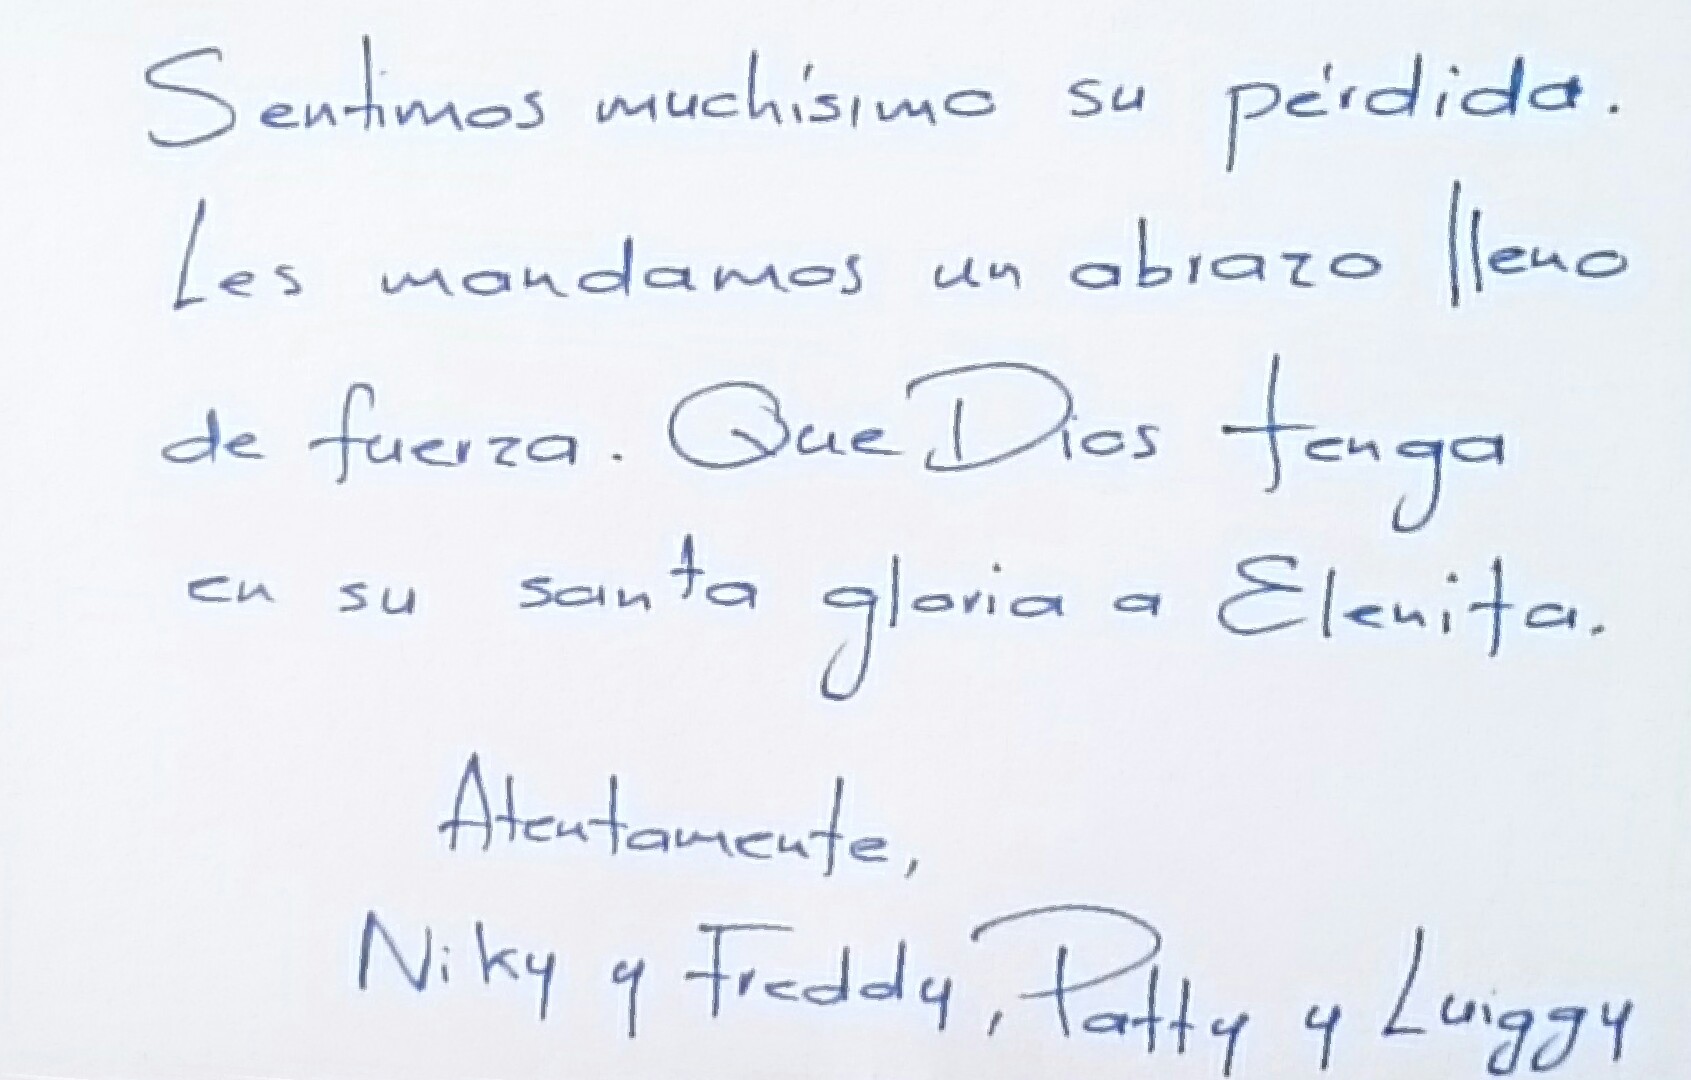 Sentimos muchísimo su pérdida.
Les mandamos un abrazo lleno
de fuerza. Que Dios tenga
en su santa gloria a Elenita.
Atentamente,
Niky y Freddy, Patty y Luiggy